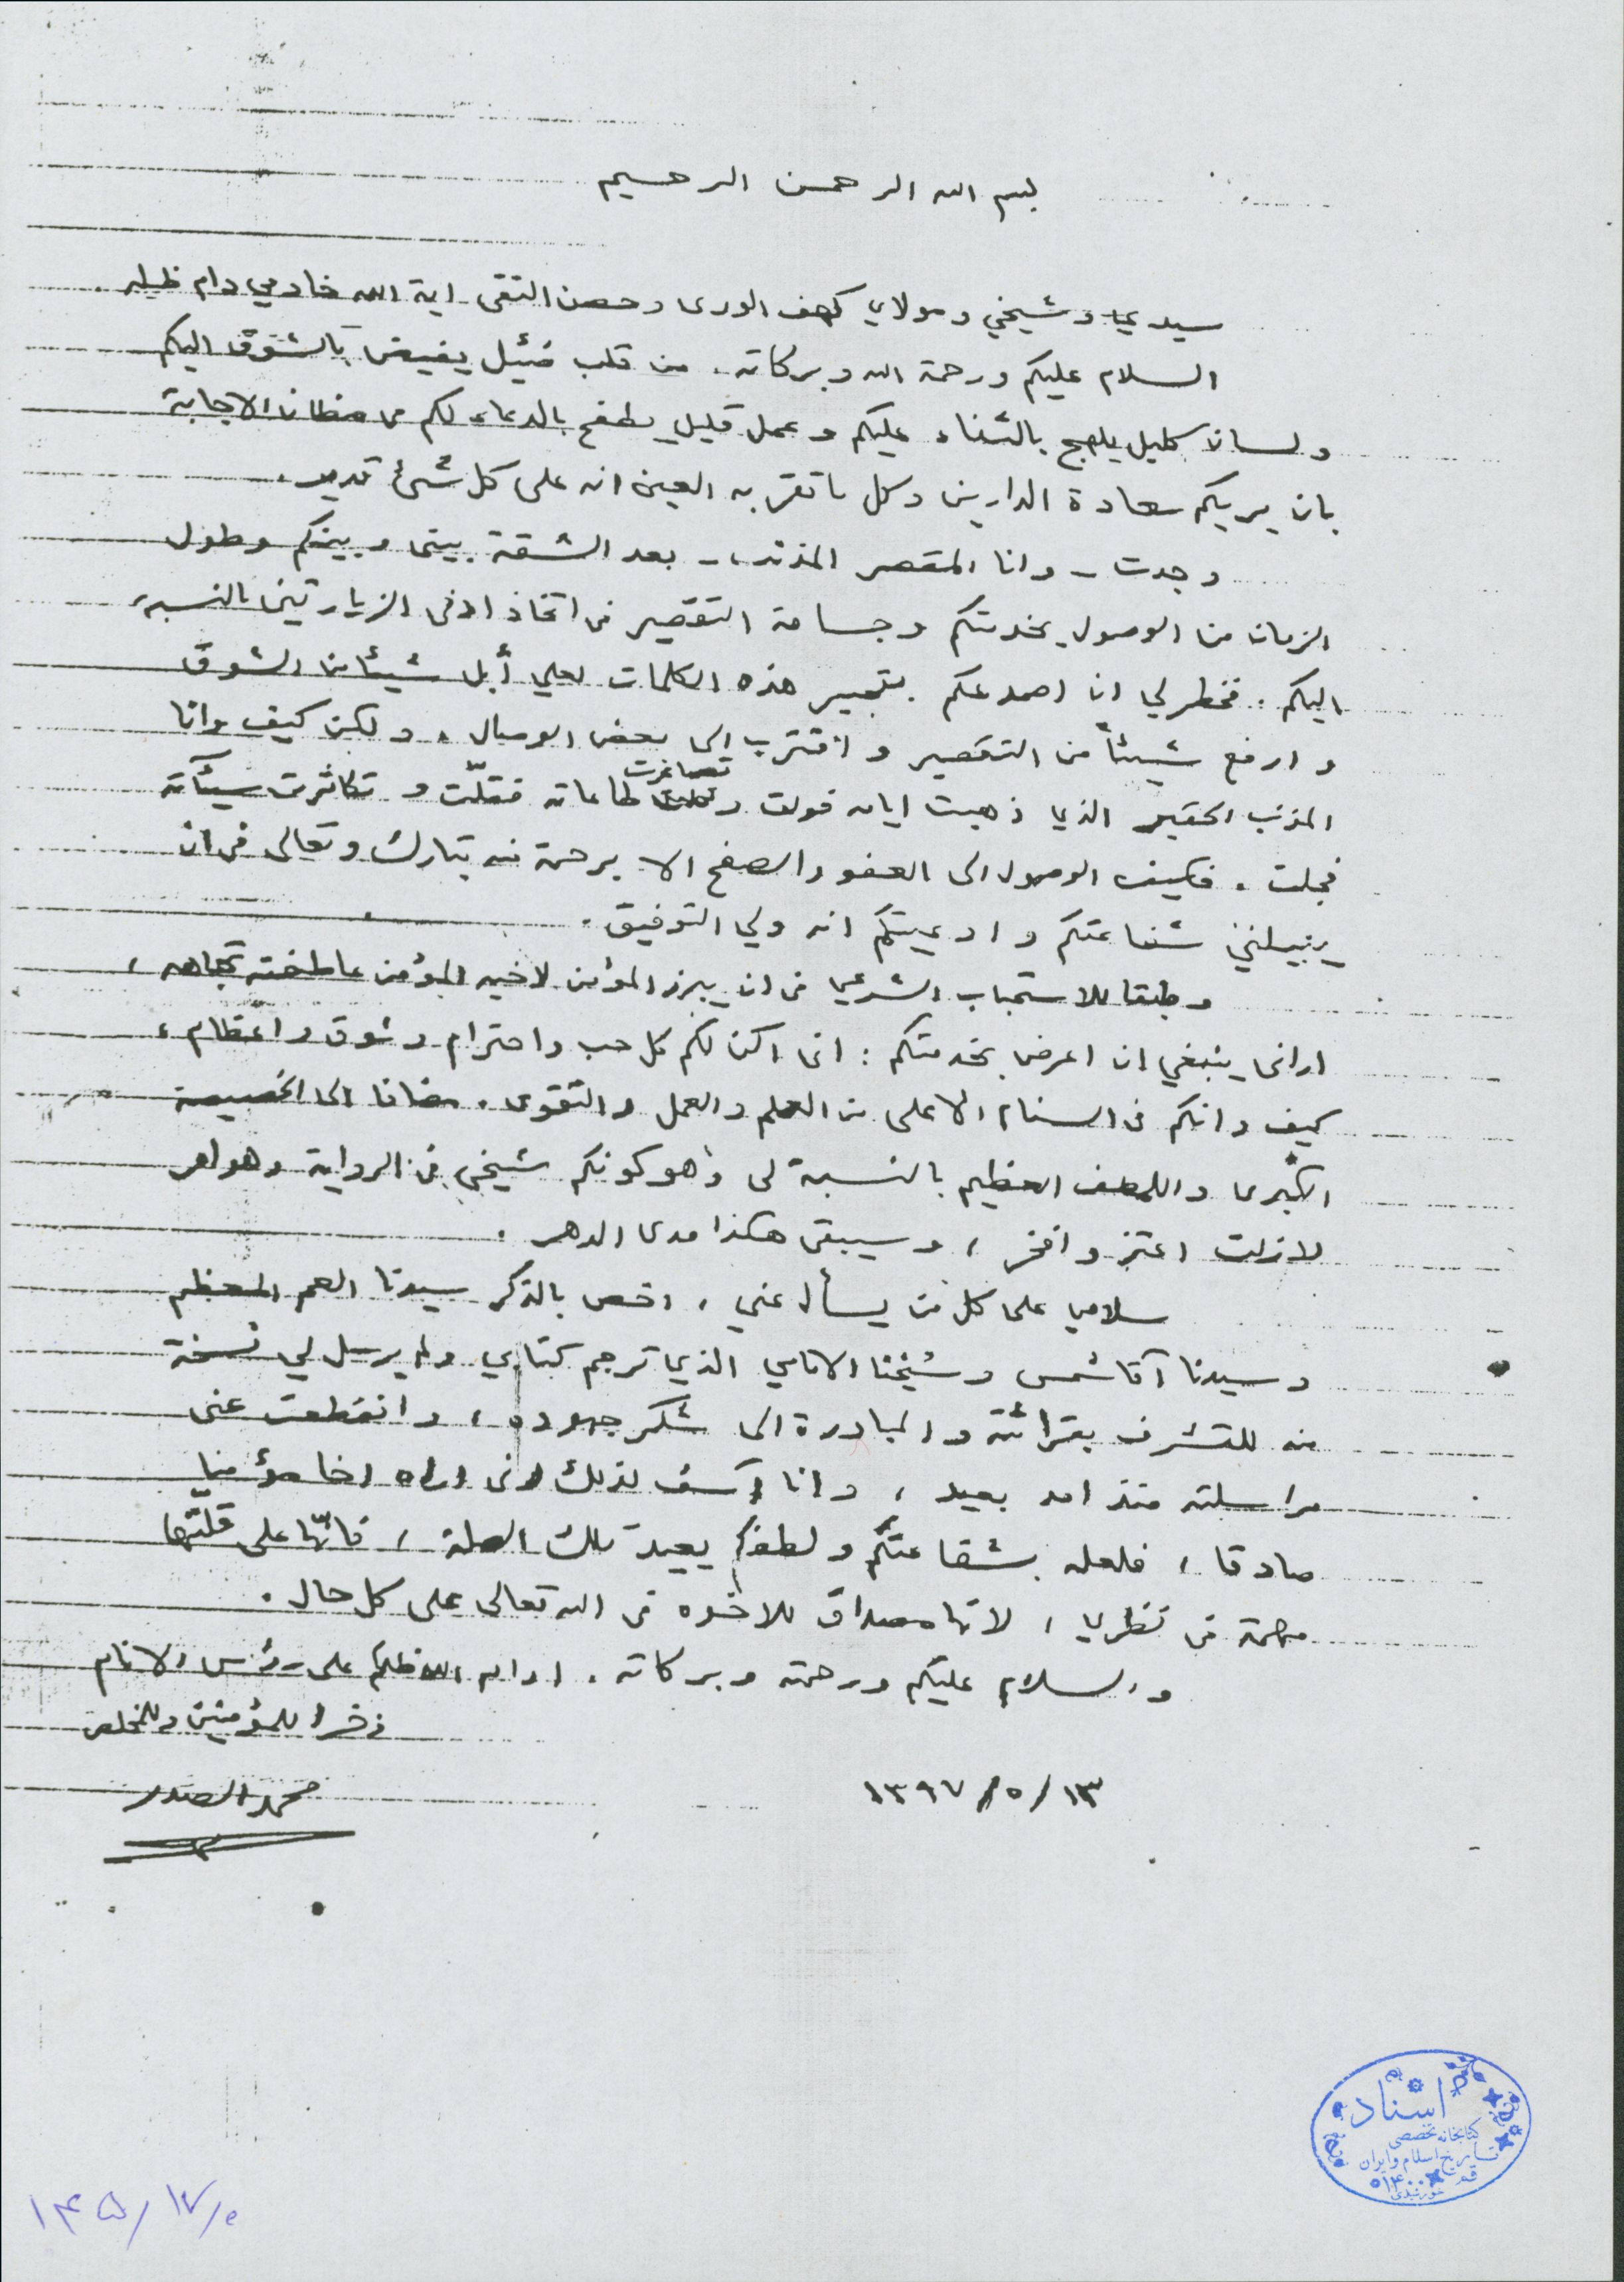 بسم الله الرحمن الرحيم
سيدي وشيخي ومولاي كهف الورى وحصن التقى اية الله خادمي دام ظله.
السلام عليكم ورحمة الله وبركاته. من قلب ضئيل يفيض بالشوق اليكم
ولسان كليل يلهج بالثناء عليكم وعمل قليل يطفح بالدعاء لكم في مظان الاجابة
بان يريكم سعادة الدارين وكل ما تقر به العين انه على كل شئ قدير.
وجدت - وانا المقصر المذنب - بعد الشقة بيني وبينكم وطول
الزمان من الوصول بخدمتكم وجسامة التقصير في اتخاذ ادنى الزيارتين بالنسبة
اليكم. فخطر لي ان اصدعكم بتحبير هذه الكلمات لعلي أبل شيئا من الشوق
و ارفع شيئاً من التقصير و اقترب الى بعض الوصال، ولكن كيف وانا
المذنب الحقير الذي ذهبت ايامه فولت و تصاغرت طاعاته فقلّت و تكاثرت سيئآته
فجلت. فكيف الوصول الى العفو والصفح الا برحمة منه تبارك وتعالى في ان
ينيلني شفاعتكم و ادعيتكم انه ولي التوفيق.
وطبقا للاستحباب الشرعي في ان يبرز المؤمن لاخيه المؤمن عاطفته تجاهه،
اراني ينبغي ان اعرض بخدمتكم: اني اكن لكم كل حب واحترام وشوق و اعظام،
كيف وانكم في السنام الاعلى من العلم والعمل والتقوى. مضافا الى الخصيصة
الكبرى واللطف العظيم بالنسبة لي وهو كونكم شيخي في الرواية وهو امر
لازلت اعتز و افخر، وسيبقى هكذا مدى الدهر.
سلامي على كل من يسأل عني، اخص بالذكر سيدنا العم المعظم
وسيدنا آقا شمس وشيخنا الامامي الذي ترجم كتابي ولم يرسل لي نسخة
منه للتشرف بقرائته والمبادرة الى شكر جهوده، وانقطعت عني
مراسلته منذ امد بعيد، وانا آسف لذلك لاني اراه اخا مؤمنا
صادقا، فلعله بشفاعتكم ولطفكم يعيد تلك الصلة، فانّها على قلتها
مهمة في نظري، لانها مصداق للاخوه في الله تعالى على كل حال.
والسلام عليكم ورحمته وبركاته. ادام الله ظلكم على رؤس الانام
ذخرا للمؤمنين وللمخلص
محمد الصدر
١٣/٥/١٣٩٧
اسناد
کتابخانه تخصصی
تاریخ اسلام و ایران
قم
۱۴۵/۱۷/۰